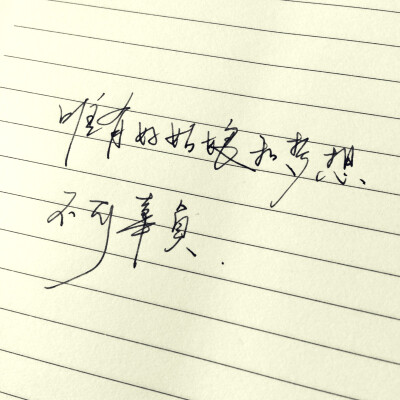 唯有好姑娘和梦想、
不可辜負.